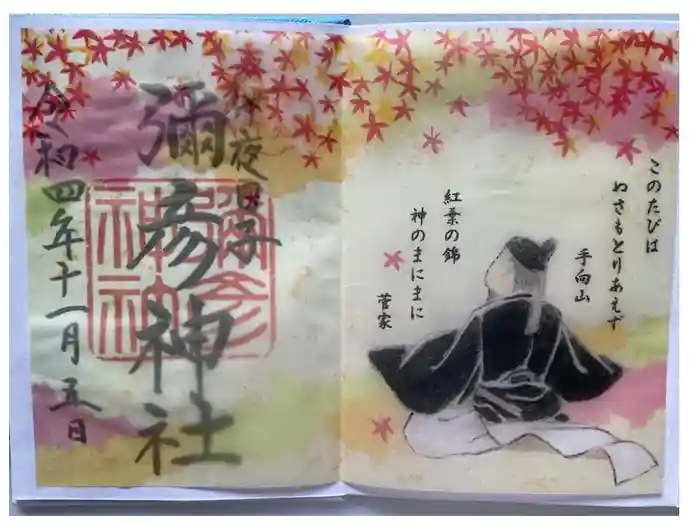 このたびは
ぬさもとりあえず
手向山
紅葉の錦
神のまにまに
菅家
伊夜日子
彌彦神社
令和四年十一月五日